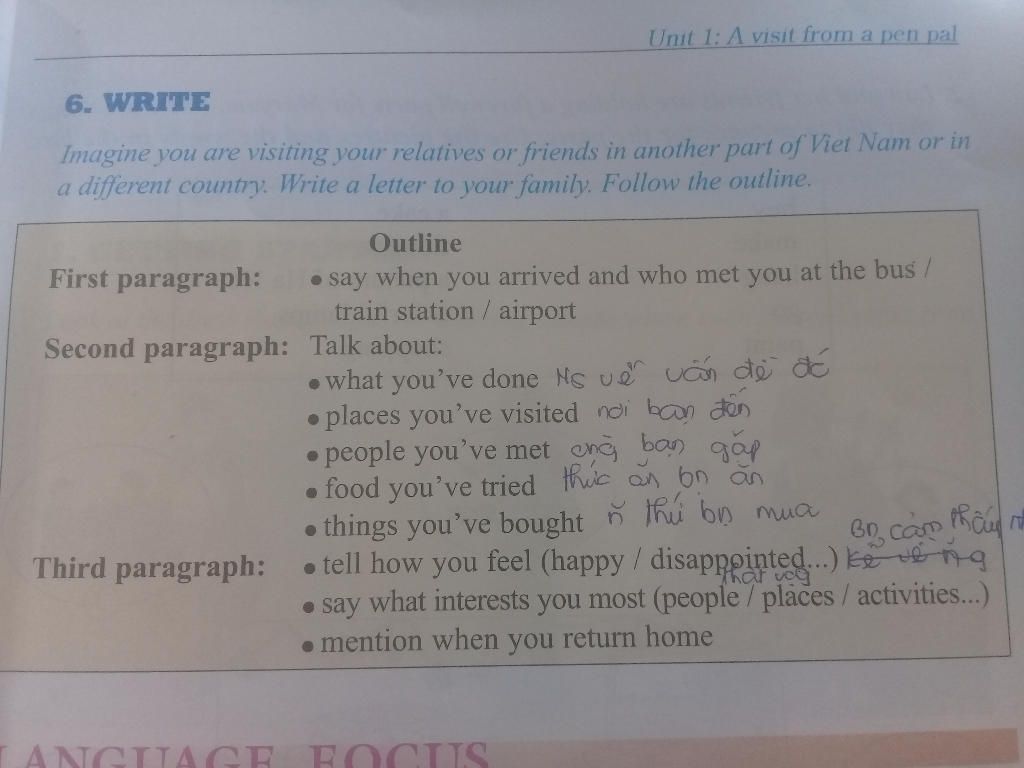 Unit 1: A visit from a pen pal
6. WRITE
Imagine you are visiting your relatives or friends in another part of Viet Nam or in
a different country. Write a letter to your family. Follow the outline.
Outline
First paragraph: • say when you arrived and who met you at the bus /
train station / airport
Second paragraph: Talk about:
• what you've done Ns về vấn đề đó
• places you've visited nơi bạn đến
• people you've met bạn gặp
• food you've tried thức ăn bn ăn
• things you've bought thứ bn mua
Bn cảm thấy
Third paragraph: • tell how you feel (happy / disappointed...)
thất vọg
• say what interests you most (people / places / activities...)
• mention when you return home
LANGUAGE FOCUS